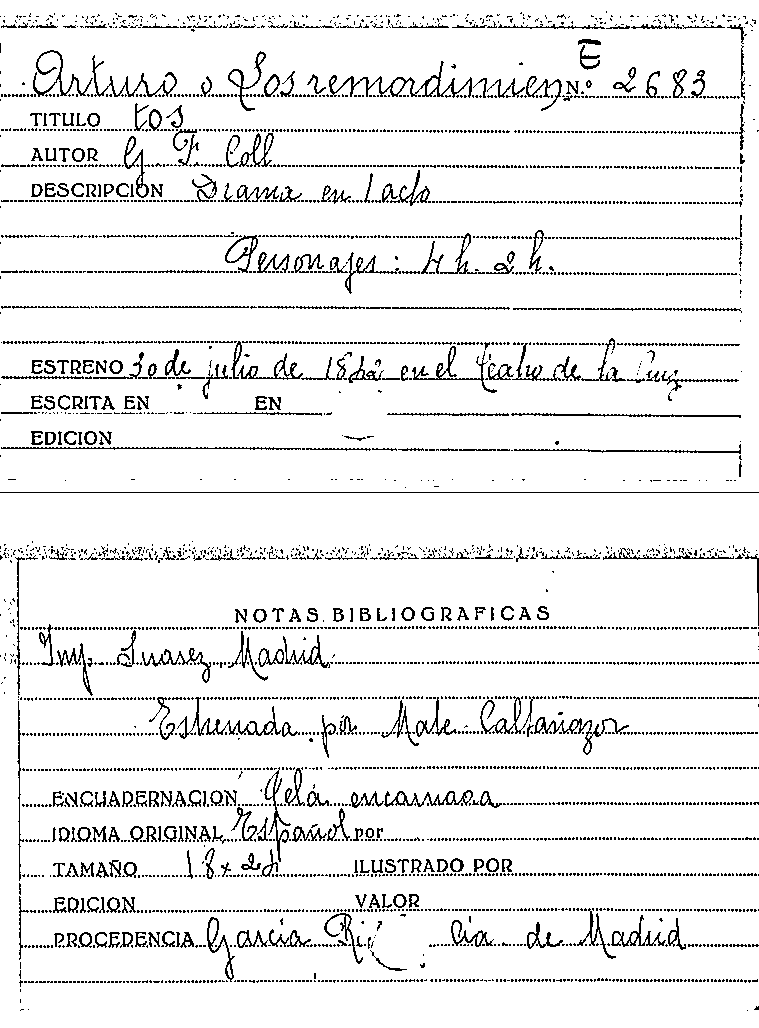 E
Arturo o Los remordimien Nº 2683
TITULO tos
AUTOR G F. Coll
DESCRIPCION Drama en 1 acto
Personajes: 4 h. 2 h.
ESTRENO 30 de julio de 1842 en el teatro de la Cruz
ESCRITA EN EN
EDICION
NOTAS BIBLIOGRAFICAS
Imp. Suarez, Madrid
Estrenada por Mate Caltañazor
ENCUADERNACION Tela encarnada
IDIOMA ORIGINAL Español por
TAMAÑO 18 x 24 ILUSTRADO POR
EDICION VALOR
PROCEDENCIA Garcia Cia de Madrid